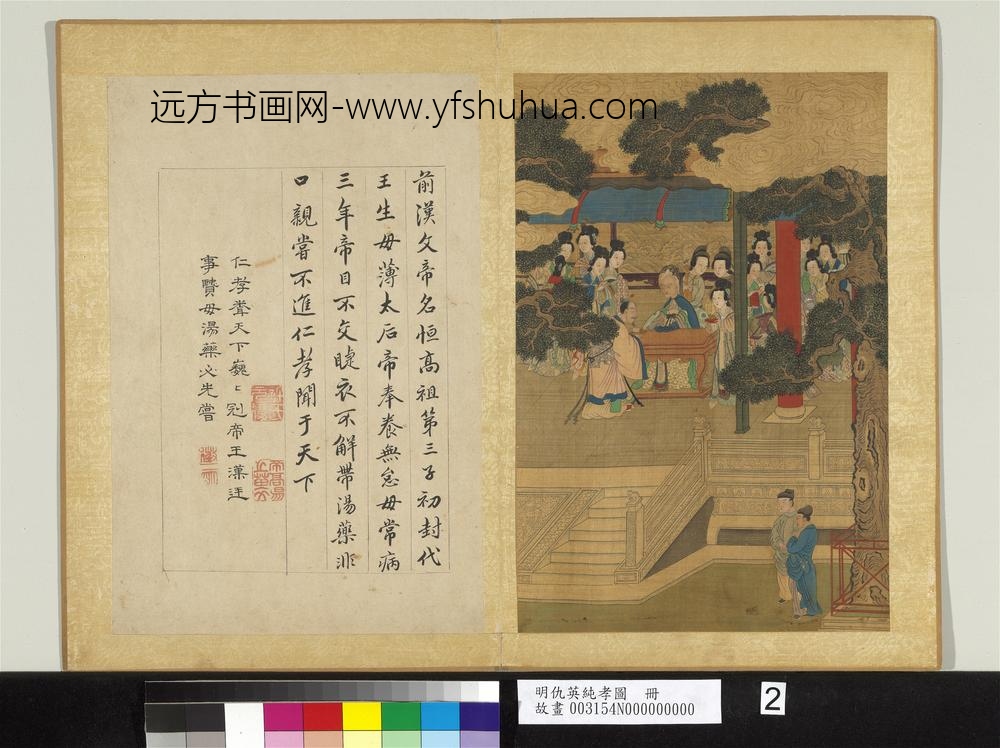 远方书画网-www.yfshuhua.com
前漢文帝名恒高祖第三子初封代
王生母薄太后帝奉養無怠母常病
三年帝目不交睫衣不解帶湯藥非
口親嘗不進仁孝聞于天下
仁孝聞天下巍〻冠帝王漢廷
事賢母湯藥必先嘗
明仇英純孝圖　冊
故畫 003154N000000000
2